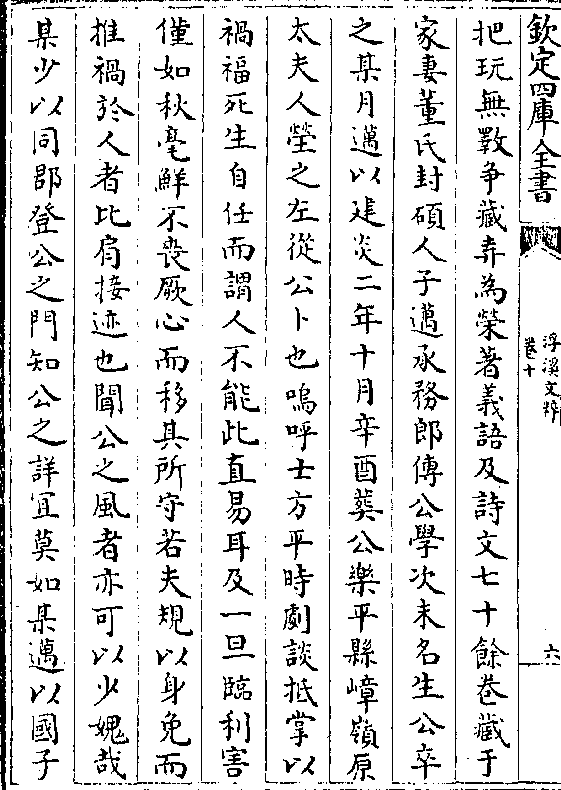 欽定四庫全書
浮溪文粹
卷十
六
把玩無斁爭藏弆為榮著義語及詩文七十餘卷藏于
家妻董氏封碩人子邁承務郎傳公學次未名生公卒
之某月邁以建炎二年十月辛酉葬公樂平縣嶂嶺原
太夫人塋之左從公卜也嗚呼士方平時劇談抵掌以
禍福死生自任而謂人不能此直易耳及一旦臨利害
僅如秋毫鮮不喪厥心而移其所守若夫規以身免而
推禍於人者比肩接迹也聞公之風者亦可以少媿哉
某少以同郡登公之門知公之詳宜莫如某邁以國子